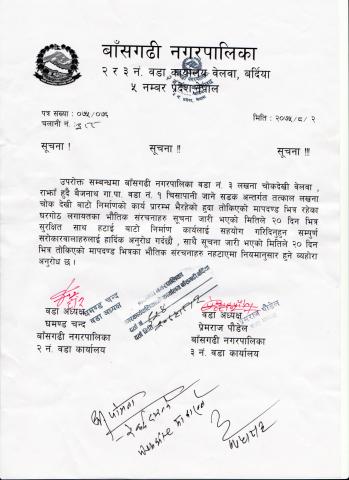 बाँसगढी नगरपालिका
२ र ३ नं. वडा कार्यालय बेलवा, बर्दिया
५ नम्बर प्रदेश नेपाल
पत्र संख्या : ०७५/०७६
चलानी नं.
मिति : २०७५/८/२
सूचना ! सूचना !! सूचना !!!
उपरोक्त सम्बन्धमा बाँसगढी नगरपालिका वडा नं. ३ लखना चोकदेखी बेलवा ,
राभाँ हुदै बैजनाथ गा.पा. वडा नं. १ चिसापानी जाने सडक अन्तर्गत तत्काल लखना
चोक देखी बाटो निर्माणको कार्य प्रारम्भ भैरहेको हुदा तोकिएको मापदण्ड भित्र रहेका
घरगोठ लगायतका भौतिक संरचनाहरु सूचना जारी भएको मितिले २० दिन भित्र
सुरक्षित साथ हटाई बाटो निर्माण कार्यलाई सहयोग गरिदिनुहुन सम्पूर्ण
सरोकारवालाहरुलाई हार्दिक अनुरोध गर्दछौ , साथै सूचना जारी भएको मितिले २० दिन
भित्र तोकिएको मापदण्ड भित्रका भौतिक संरचनाहरु नहटाएमा नियमानुसार हुने व्यहोरा
अनुरोध छ ।
घमण्ड चन्द
वडा अध्यक्ष
वडा अध्यक्ष वडा अध्यक्ष
प्रेमराज पौडेल
घमण्ड चन्द प्रेमराज पौडेल
बाँसगढी नगरपालिका बाँसगढी नगरपालिका
२ नं. वडा कार्यालय ३ नं. वडा कार्यालय